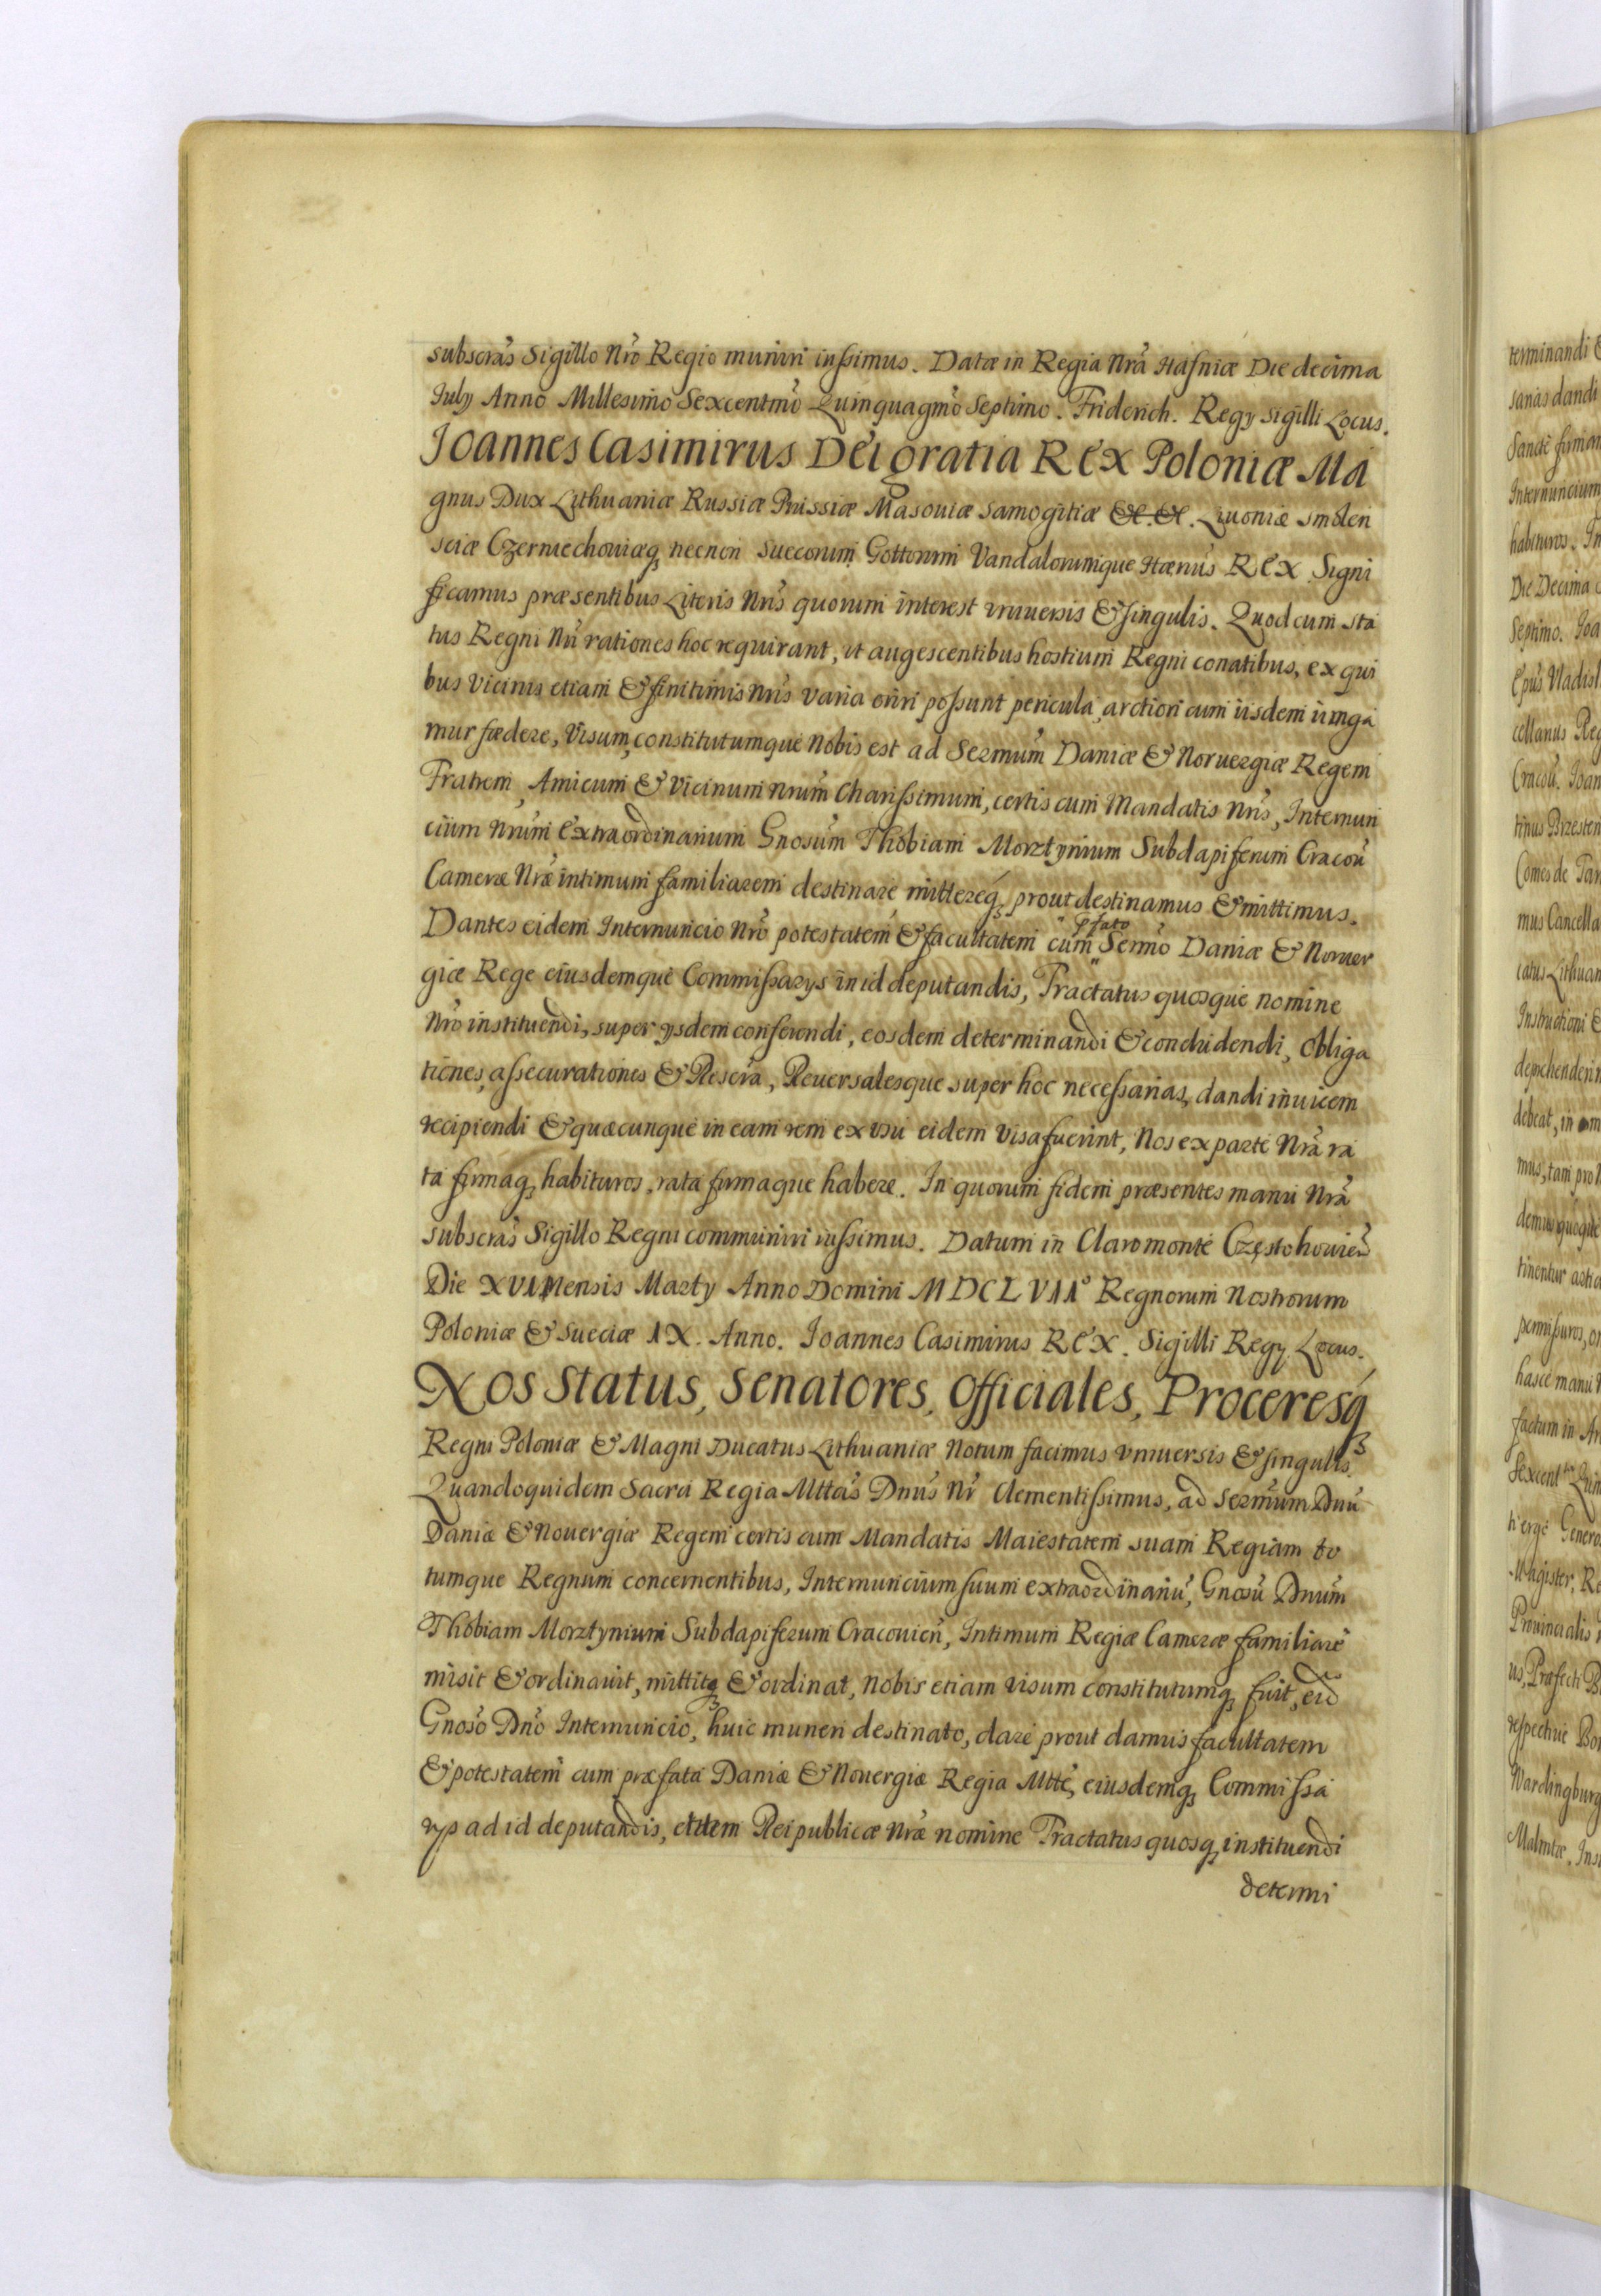 subscras Sigillo Nro Regio muniri iussimus. Datæ in Regia Nra Hafniæ Die decima
July Anno Millesimo Sexcentmo Quinquagmo Septimo. Friderich. Regy sigilli Locus.
Joannes Casimirus Dei gratia Rex Poloniæ Ma
gnus Dux Lithuaniæ Russiæ Prussiæ Masouiæ Samogitiæ &c. &c. Liuoniæ Smolen
sciæ Czerniechouiæq necnon Suecorum Gottorum Vandalorumque Hærnus Rex Signi
ficamus præsentibus Literis Nris quorum interest vniuersis & singulis. Quod cum sta
tus Regni Nri rationes hoc requirant, ut augescentibus hostium Regni conatibus, ex qui
bus Vicinis etiam & finitimis Nris varia oriri possunt pericula, arctiori cum iisdem iunga
mur fœdere, Visum, constitutumque Nobis est ad Sermum Daniæ & Noruergiæ Regem
Fratrem Amicum & Vicinum Nrum Charissimum, certis cum Mandatis Nris, Internun
cium Nrum Extraordinarium Gnosum Thobiam Morztynium Subdapiferum Cracou
Cameræ Nræ intimum familiarem destinare mittereq, prout destinamus & mittimus.
Dantes eidem Internuncio Nro potestatem & facultatem cum pfato Sermo Daniæ & Noruer
giæ Rege eiusdemque Commissarys in id deputandis, Tractatus quosque nomine
Nro instituendi, super ysdem conferendi, eosdem determinandi & concludendi, Obliga
tiones, assecurationes & Rescra, Reuersalesque super hoc necessarias, dandi inuicem
recipiendi & quæcunque in eam rem ex usu eidem Visa fuerint, Nos ex parte Nra ra
ta firmaq habituros, rata firmaque habere. In quorum fidem præsentes manu Nra
subscras Sigillo Regni communiri iussimus. Datum in Claromonte Częstohouien
Die XVII Mensis Marty Anno Domini MDCLVII° Regnorum Nostrorum
Poloniæ & Sueciæ IX. Anno. Joannes Casimirus Rex. Sigilli Regy Locus.
Nos Status, Senatores, Officiales, Proceresq
Regni Poloniæ & Magni Ducatus Lithuaniæ Notum facimus vniuersis & singulis.
Quandoquidem Sacra Regia Mttas Dnus Nr Clementissimus, ad Sermum Dnu
Daniæ & Nouergiæ Regem certis cum Mandatis Maiestatem suam Regiam to
tumque Regnum concernentibus, Internuncium suum extraordinariu, Gnosu Dnum
Thobiam Morztynium Subdapiferum Cracouien, Intimum Regiæ Cameræ familiare
misit & ordinauit, mittitq & ordinat, Nobis etiam visum constitutumq fuit, eid
Gnoso Dno Internuncio, huic muneri destinato, dare prout damus facultatem
& potestatem cum præfata Daniæ & Nouergiæ Regia Mtte, eiusdemq Commissa
rys ad id deputandis, Reipublicæ Nræ nomine Tractatus quosq instituendi
determi